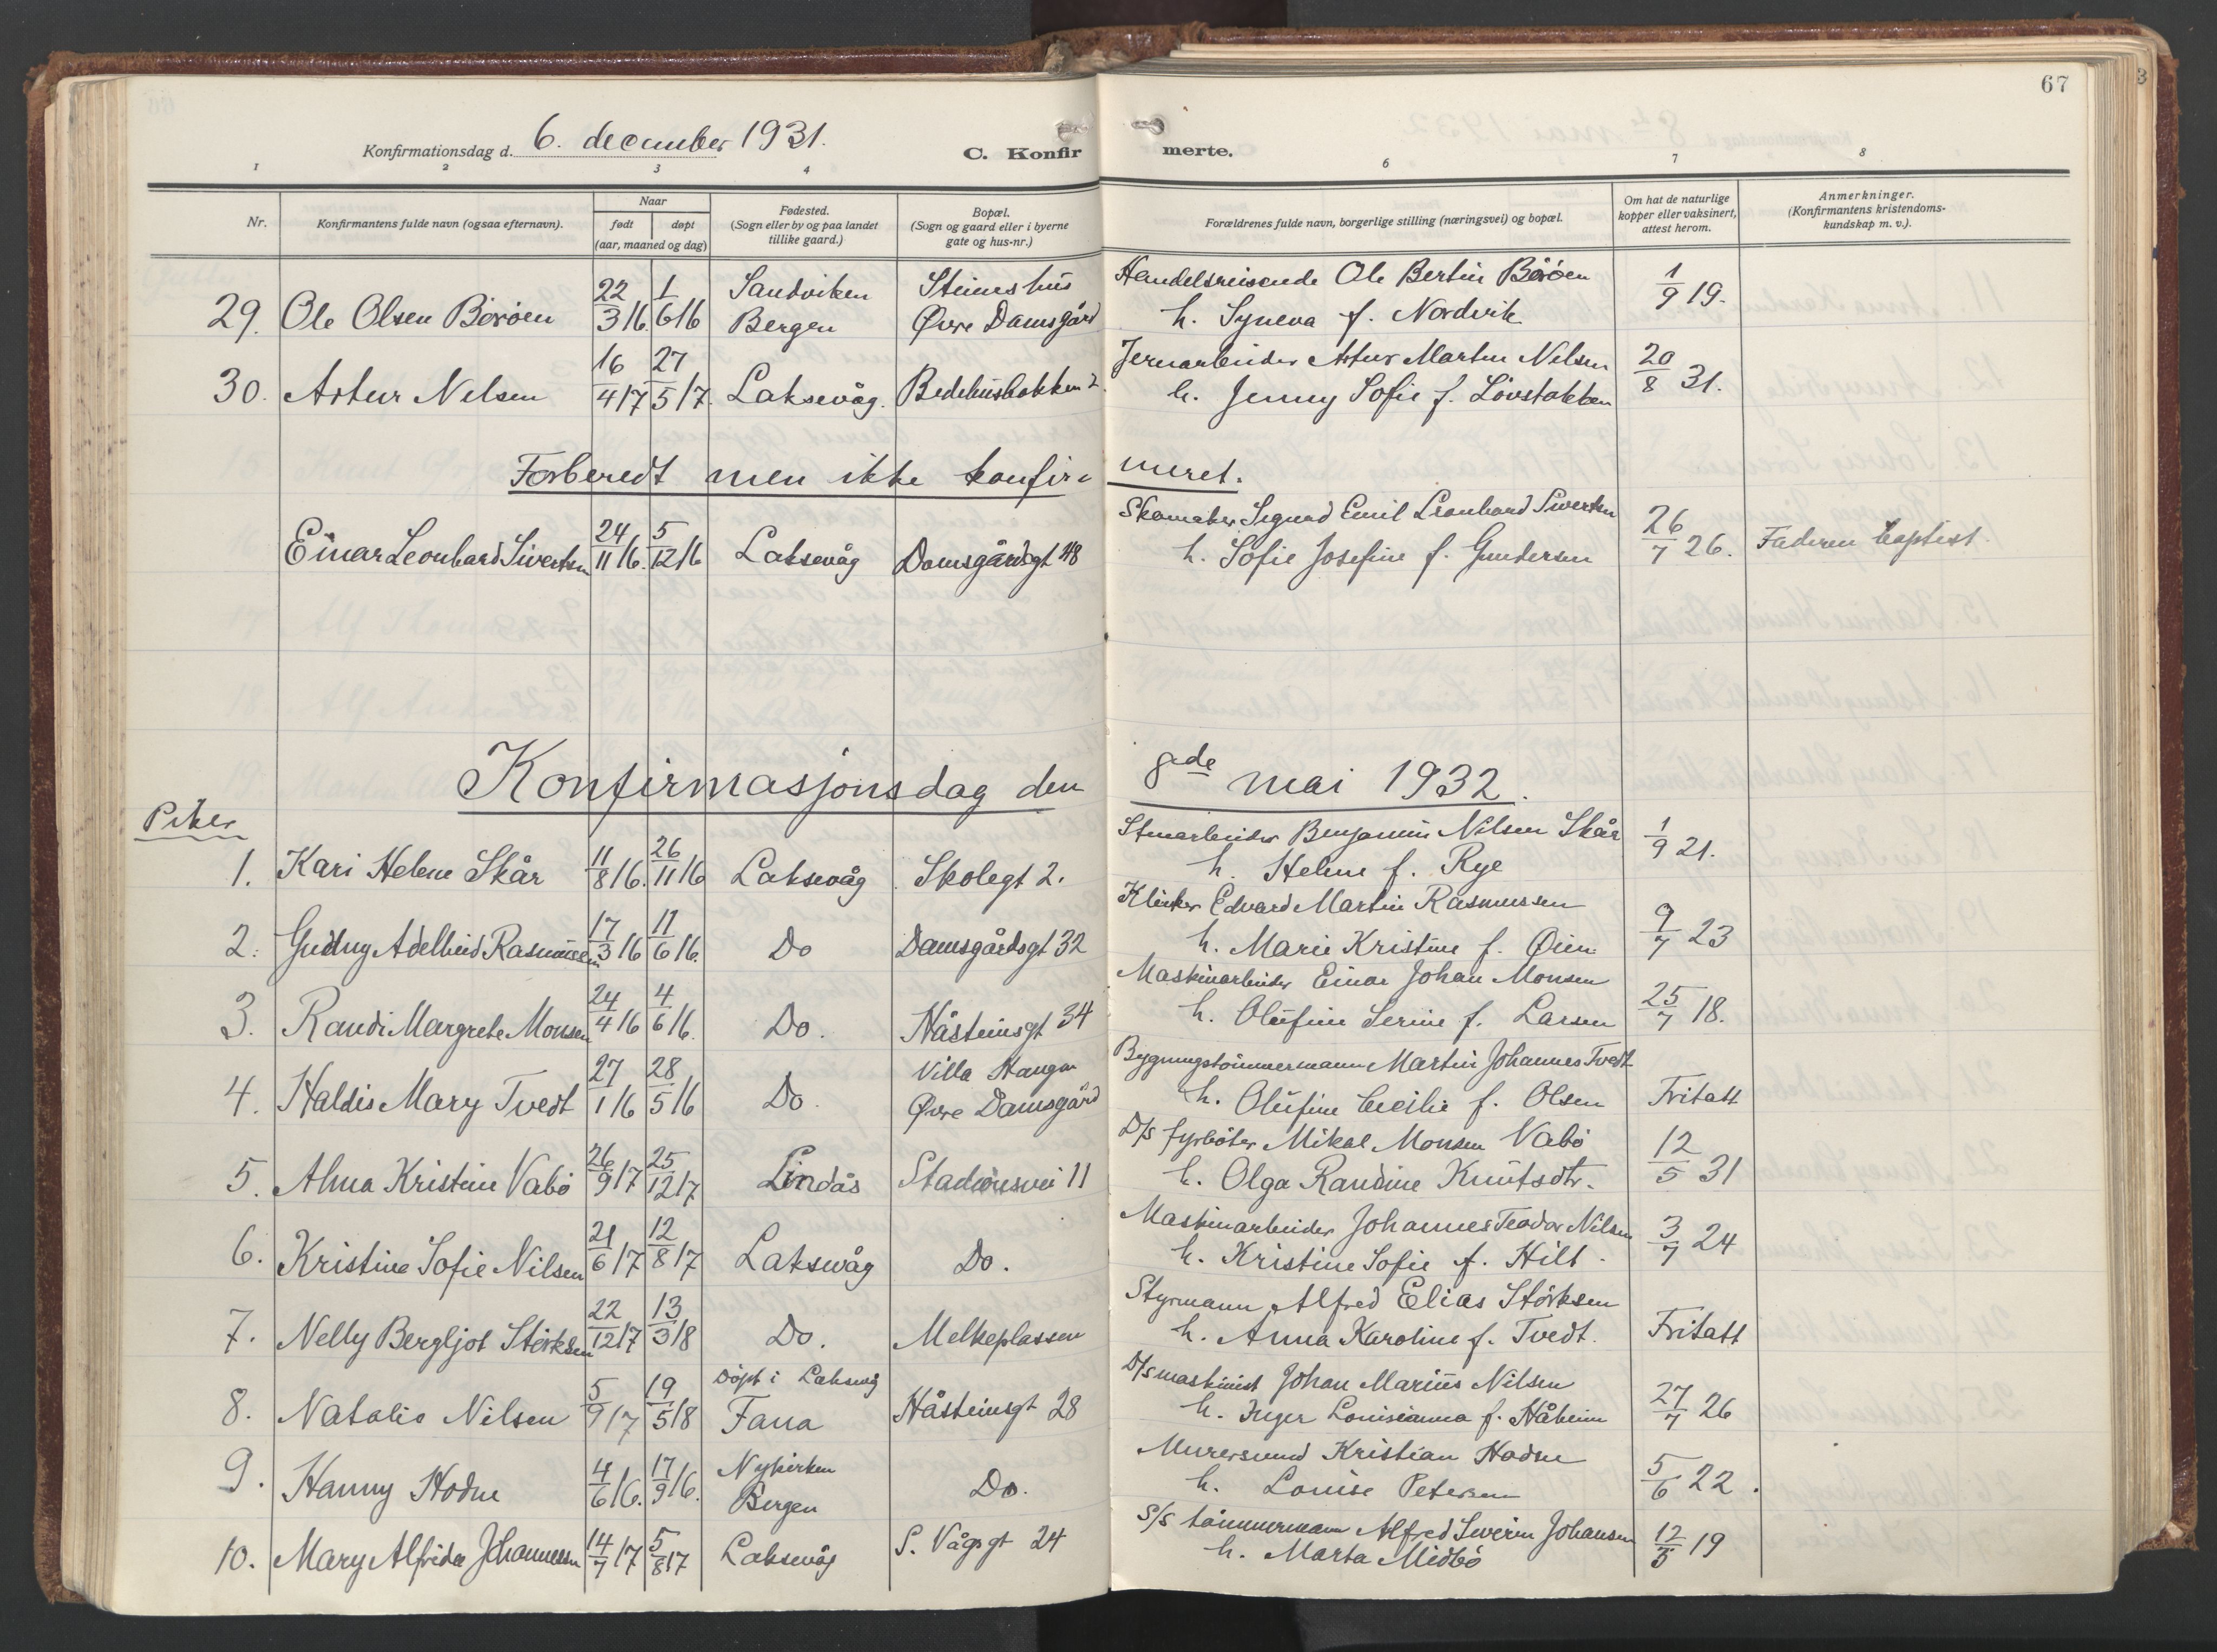 67
Konfirmationsdag d. 6. december 1931. C. Konfirmerte.
1 2 3 4 6 7 8
Nr. Konfirmantens fulde navn (ogsaa efternavn). Naar født døpt (aar, maaned og dag) Fødested. (Sogn eller by og paa landet tillike gaard.) Bopæl. (Sogn og gaard eller i byerne gate og hus-nr.) Forældrenes fulde navn, borgerlige stilling (næringsvei) og bopæl. Om hat de naturlige kopper eller vaksinert, attest herom. Anmerkninger. (Konfirmantens kristendoms-kundskap m. v.).
Sandviken Steineshus Handelsreisende Ole Bertin Böröen
29. Ole Olsen Böröen 22/3 16. 1/6 16 Bergen Øvre Damsgård h. Syneva f. Nordvik 1/9 19.
Jernarbeider Artur Martin Nilsen
30. Artur Nilsen 16/4 17 27/5 17. Laksevåg. Bedehusbakken 2. h. Jenny Sofie f. Lövstakken 20/8 31.
Forberedt men ikke konfirmeret.
Skomaker Sigurd Emil Leonhard Sivertsen
Einar Leonhard Sivertsen 24/11 16. 5/12 16 Laksevåg Damsgårdsgt 48 h. Sofie Josefine f. Gundersen 26/7 26. Faderen baptist.
Konfirmasjonsdag den 8de mai 1932.
Piker
Stenarbeider Benjamin Nilsen Skår
1. Kari Helene Skår 11/8 16. 26/11 16 Laksevåg Skolegt 2. h. Helene f. Rye 1/9 21.
Klinker Edvard Martin Rasmussen
2. Gudny Adelheid Rasmussen 17/3 16 11/6 16. Do Damsgårdsgt 32 h. Marie Kristine f. Øien 9/7 23
Maskinarbeider Einar Johan Monsen
3. Randi Margrete Monsen 24/4 16 4/6 16. Do. Håsteinsgt 34 h. Olüfine Serine f. Larsen 25/7 18.
Villa Haugen Bygningstömmermann Martin Johannes Tvedt
4. Haldis Mary Tvedt 27/1 16 28/5 16 Do. Øvre Damsgård h. Olüfine Cecilie f. Olsen Fritatt
D/s fyrböter Mikal Monsen Vabö
5. Alma Kristine Vabö 26/9 17 25/12 17 Lindås Stadionsvei 11 h. Olga Randine Knütsdtr. 12/5 31
Maskinarbeider Johannes Teodor Nilsen
6. Kristine Sofie Nilsen 21/6 17 12/8 17 Laksevåg Do. h. Kristine Sofie f. Hilt. 3/7 24
Styrmann Alfred Elias Störksen
7. Nelly Bergljot Störksen 22/12 17 13/3 18 Do. Melkeplassen h. Anna Karoline f. Tvedt. Fritatt
Döpt i Laksevåg D/s maskinist Johan Mariüs Nilsen
8. Natalie Nilsen 5/9 17 19/5 18 Fana Håsteinsgt 28 h. Inger Louisianna f. Håheim 27/7 26
Nykirken Murersvend Kristian Hodne
9. Hanny Hodne 4/6 16. 17/9 16. Bergen Do. h. Louise Petersen 5/6 22.
S/s tömmermann Alfred Severin Johansen
10. Mary Alfrida Johannesen 14/7 17 5/8 17 Laksevåg S. Vågsgt 24 h. Marta Midbö 12/5 19